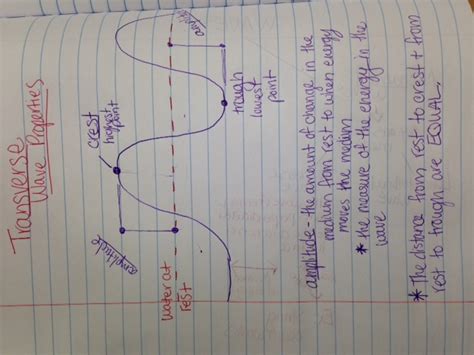 Transverse
Wave Properties
crest
highest
point
amplitude
water at
rest
trough
lowest
point
amplitude - the amount of change in the
medium from rest to when energy
moves the medium
* the measure of the energy in the
wave
* The distance from rest to crest & from
rest to trough are EQUAL.